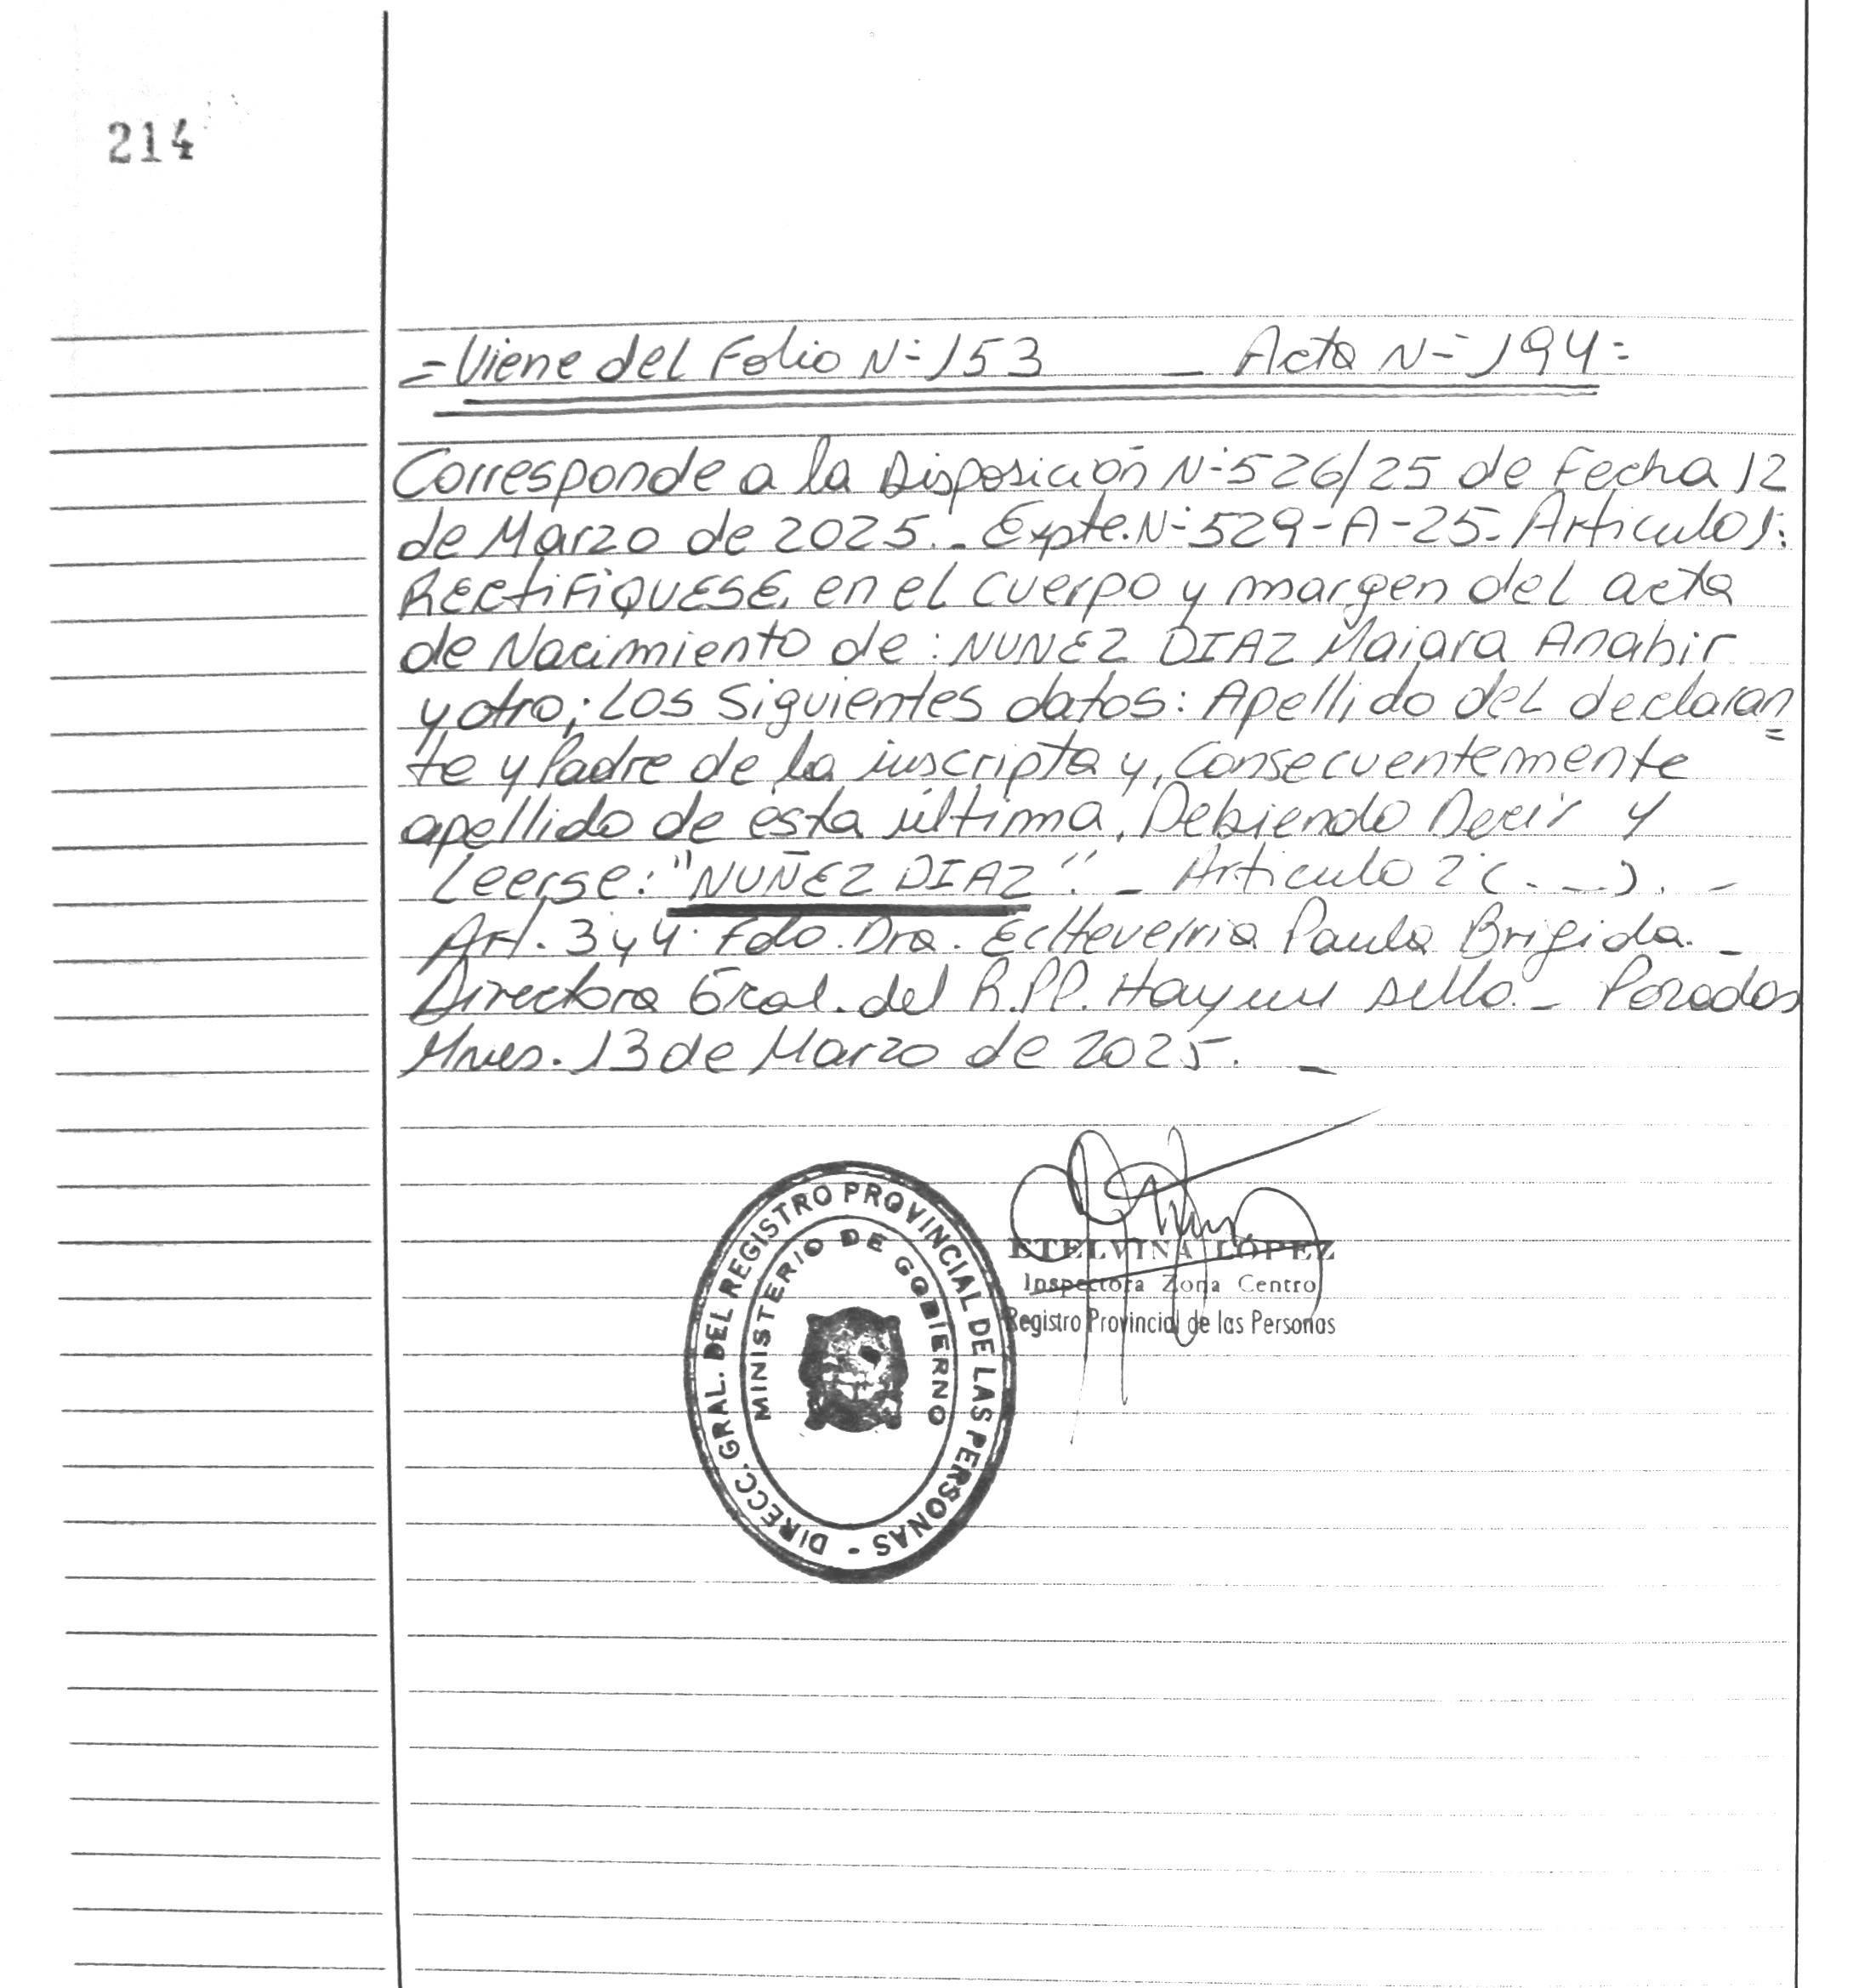 214
= Viene del Folio N° 153 _ Acta N° 194 =
Corresponde a la Disposición N° 526/25 de Fecha 12
de Marzo de 2025._ Expte. N° 529-A-25- Articulo 1:
RECTIFIQUESE, en el cuerpo y margen del acta
de Nacimiento de: NUNEZ DIAZ Maiara Anahir
y otro; Los Siguientes datos: Apellido del declaran=
te y Padre de la inscripta y, Consecuentemente
apellido de esta última, Debiendo Decir y
Leerse: "NUÑEZ DIAZ". _ Articulo 2° (. _ _). -
Art. 3 y 4. Fdo. Dra. Echeverria Paula Brigida. _
Directora Gral. del R.P.P. Hay un sello._ Posadas
Mnes. 13 de Marzo de 2025. _
DIRECC. GRAL. DEL REGISTRO PROVINCIAL DE LAS PERSONAS -
MINISTERIO DE GOBIERNO
ETELVINA LÓPEZ
Inspectora Zona Centro
Registro Provincial de las Personas